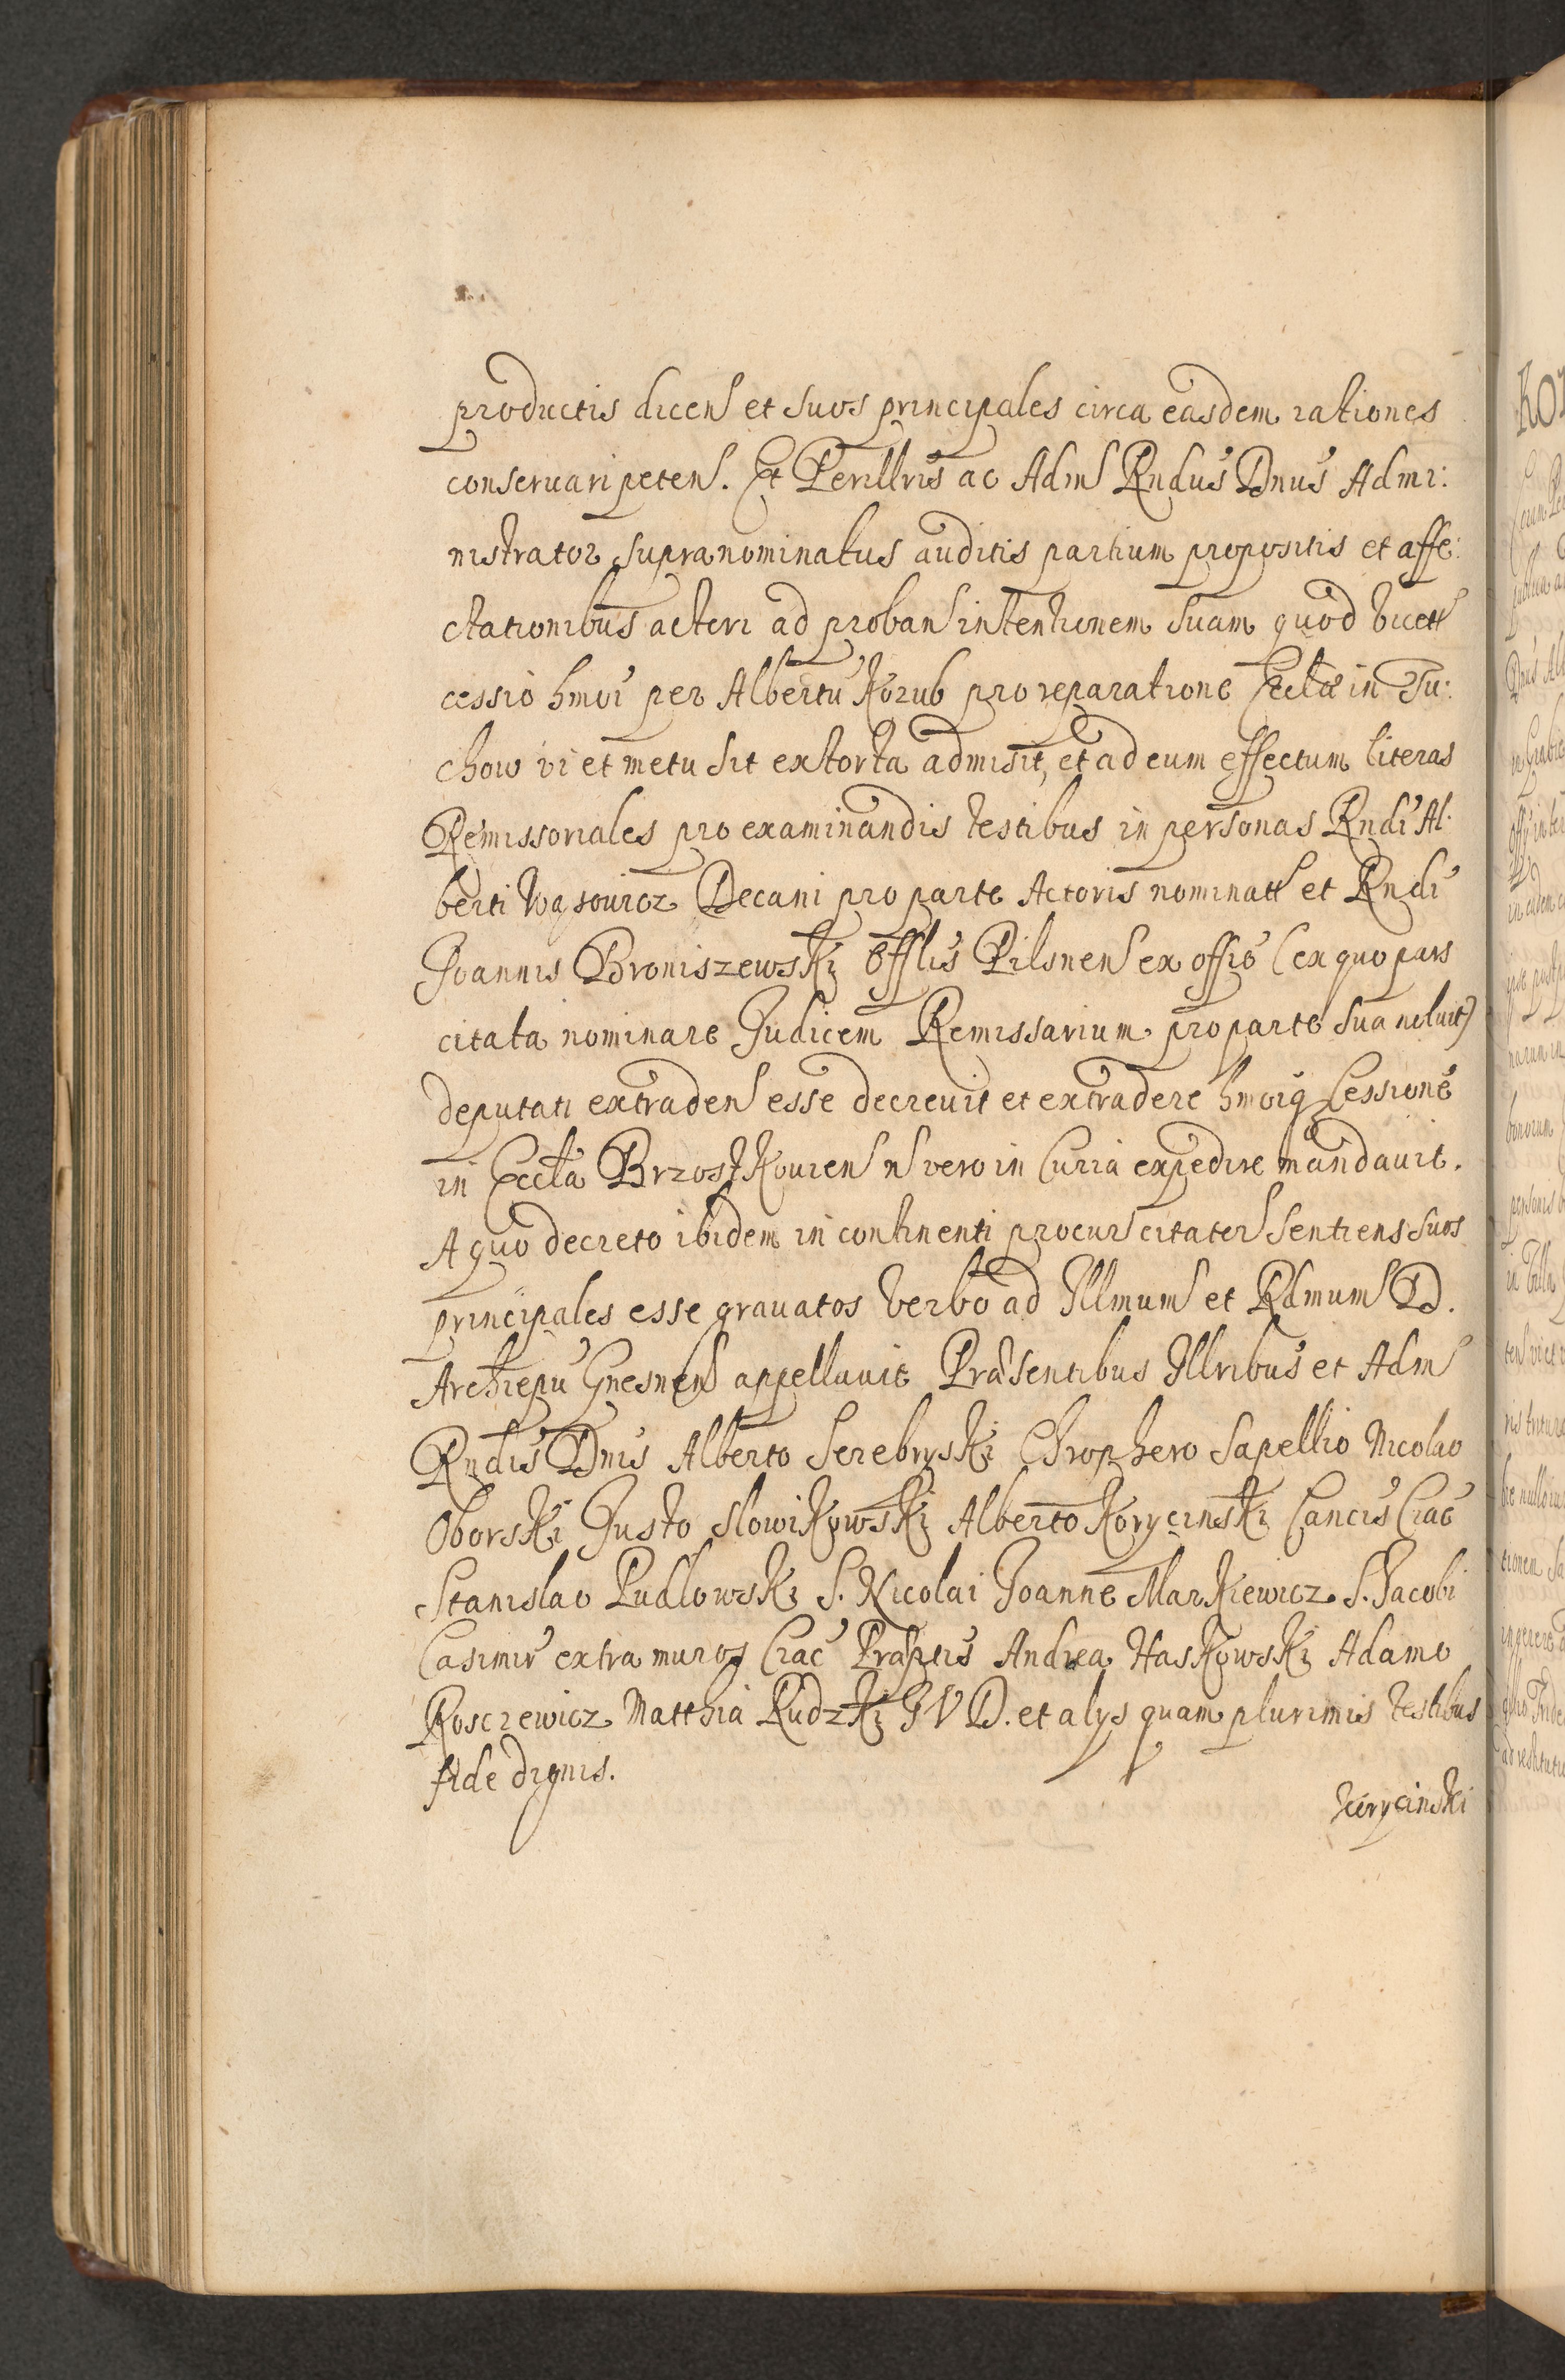 productis dicen et suos principales circa easdem rationes
conseruari peten. Et Perillris ac Adm Rndus Dnus Admi:
nistrator supranominatus auditis partium propositis et affe:
ctationibus actori ad proban intentionem suam quod
cessio hmoi per Albertu Kozub pro reparatione Eccltae in Tu:
chow vi et metu sit extorta admisit, et ad eum effectum literas
Remissoriales pro examinandis testibus in personas Rndi Al:
berti Wąsowicz Decani pro parte Actoris nominatt et Rndi
Joannis Broniszewski Offlis Pilsnen ex offio (ex quo pars
citata nominare Judicem Remissarium pro parte sua noluit)
deputati extraden esse decreuit et extradere hmoiq Cessione
in Eccla Brzostkouien n vero in Curia expedire mandauit.
A quo decreto ibidem in continenti procur citator sentiens suos
principales esse grauatos verbo ad Illmum et Rdmum D.
Archiepu Gnesnen appellauit Praesentibus Illribus et Adm
Rndis Dnis Alberto Serebryski Chrophero Sapellio Nicolao
Oborski Justo Slowikowski Alberto Korycinski Cancis Crac
Stanislao Pudlowski S. Nicolai Joanne Markiewicz S. Jacobi
Casimir extra muros Crac Praeptis Andrea Haskowski Adamo
Rosciewicz Matthia Rudzki J V D. et alys quam plurimis testibus
fide dignis.
Korycinski